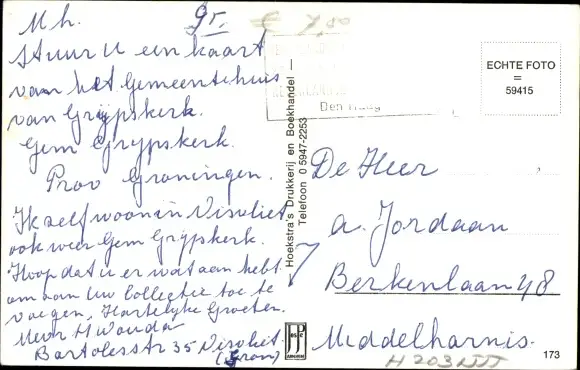 M h.
gr.
€ 7,50
Stuur U een kaart
van het Gemeentehuis
van Grijpskerk.
Gem Grijpskerk.
Prov Groningen.
Ik zelf woon in Visvliet
ook weer Gem Grijpskerk.
Hoop dat u er wat aan hebt
om aan Uw Collectie toe te
voegen, Hartelijke Groeten.
Mevr H Wouda
Bartolesstr 35 Visvliet.
(Gron)
Hoekstra's Drukkerij en Boekhandel —
Telefoon 0 5947-2253
Den Haag
ECHTE FOTO
=
59415
De Heer
A. Jordaan
Berkenlaan 48
Middelharnis.
173